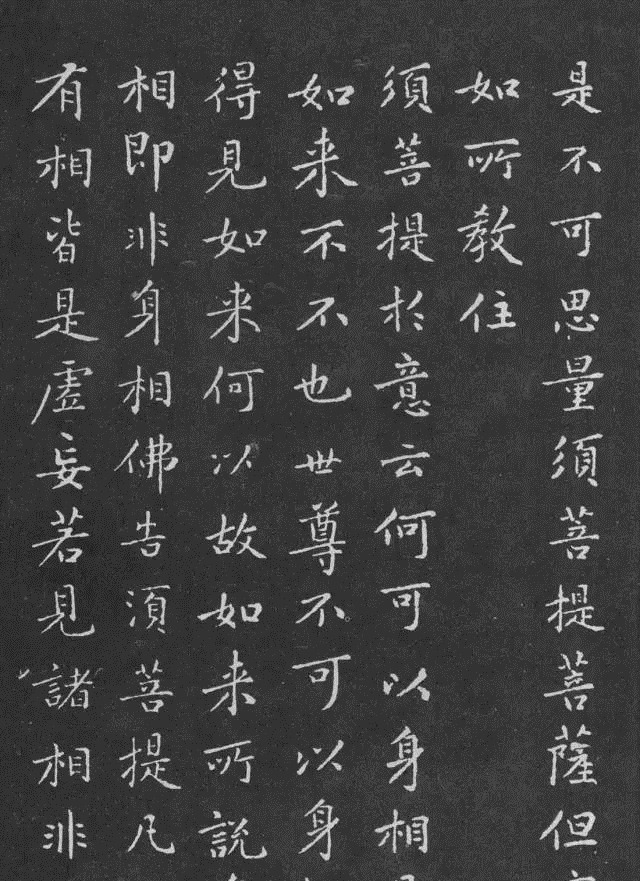 是不可思量須菩提菩薩但
如所教住
須菩提於意云何可以身相
如来不不也世尊不可以身
得見如来何以故如来所說
相即非身相佛告須菩提凡
有相皆是虛妄若見諸相非